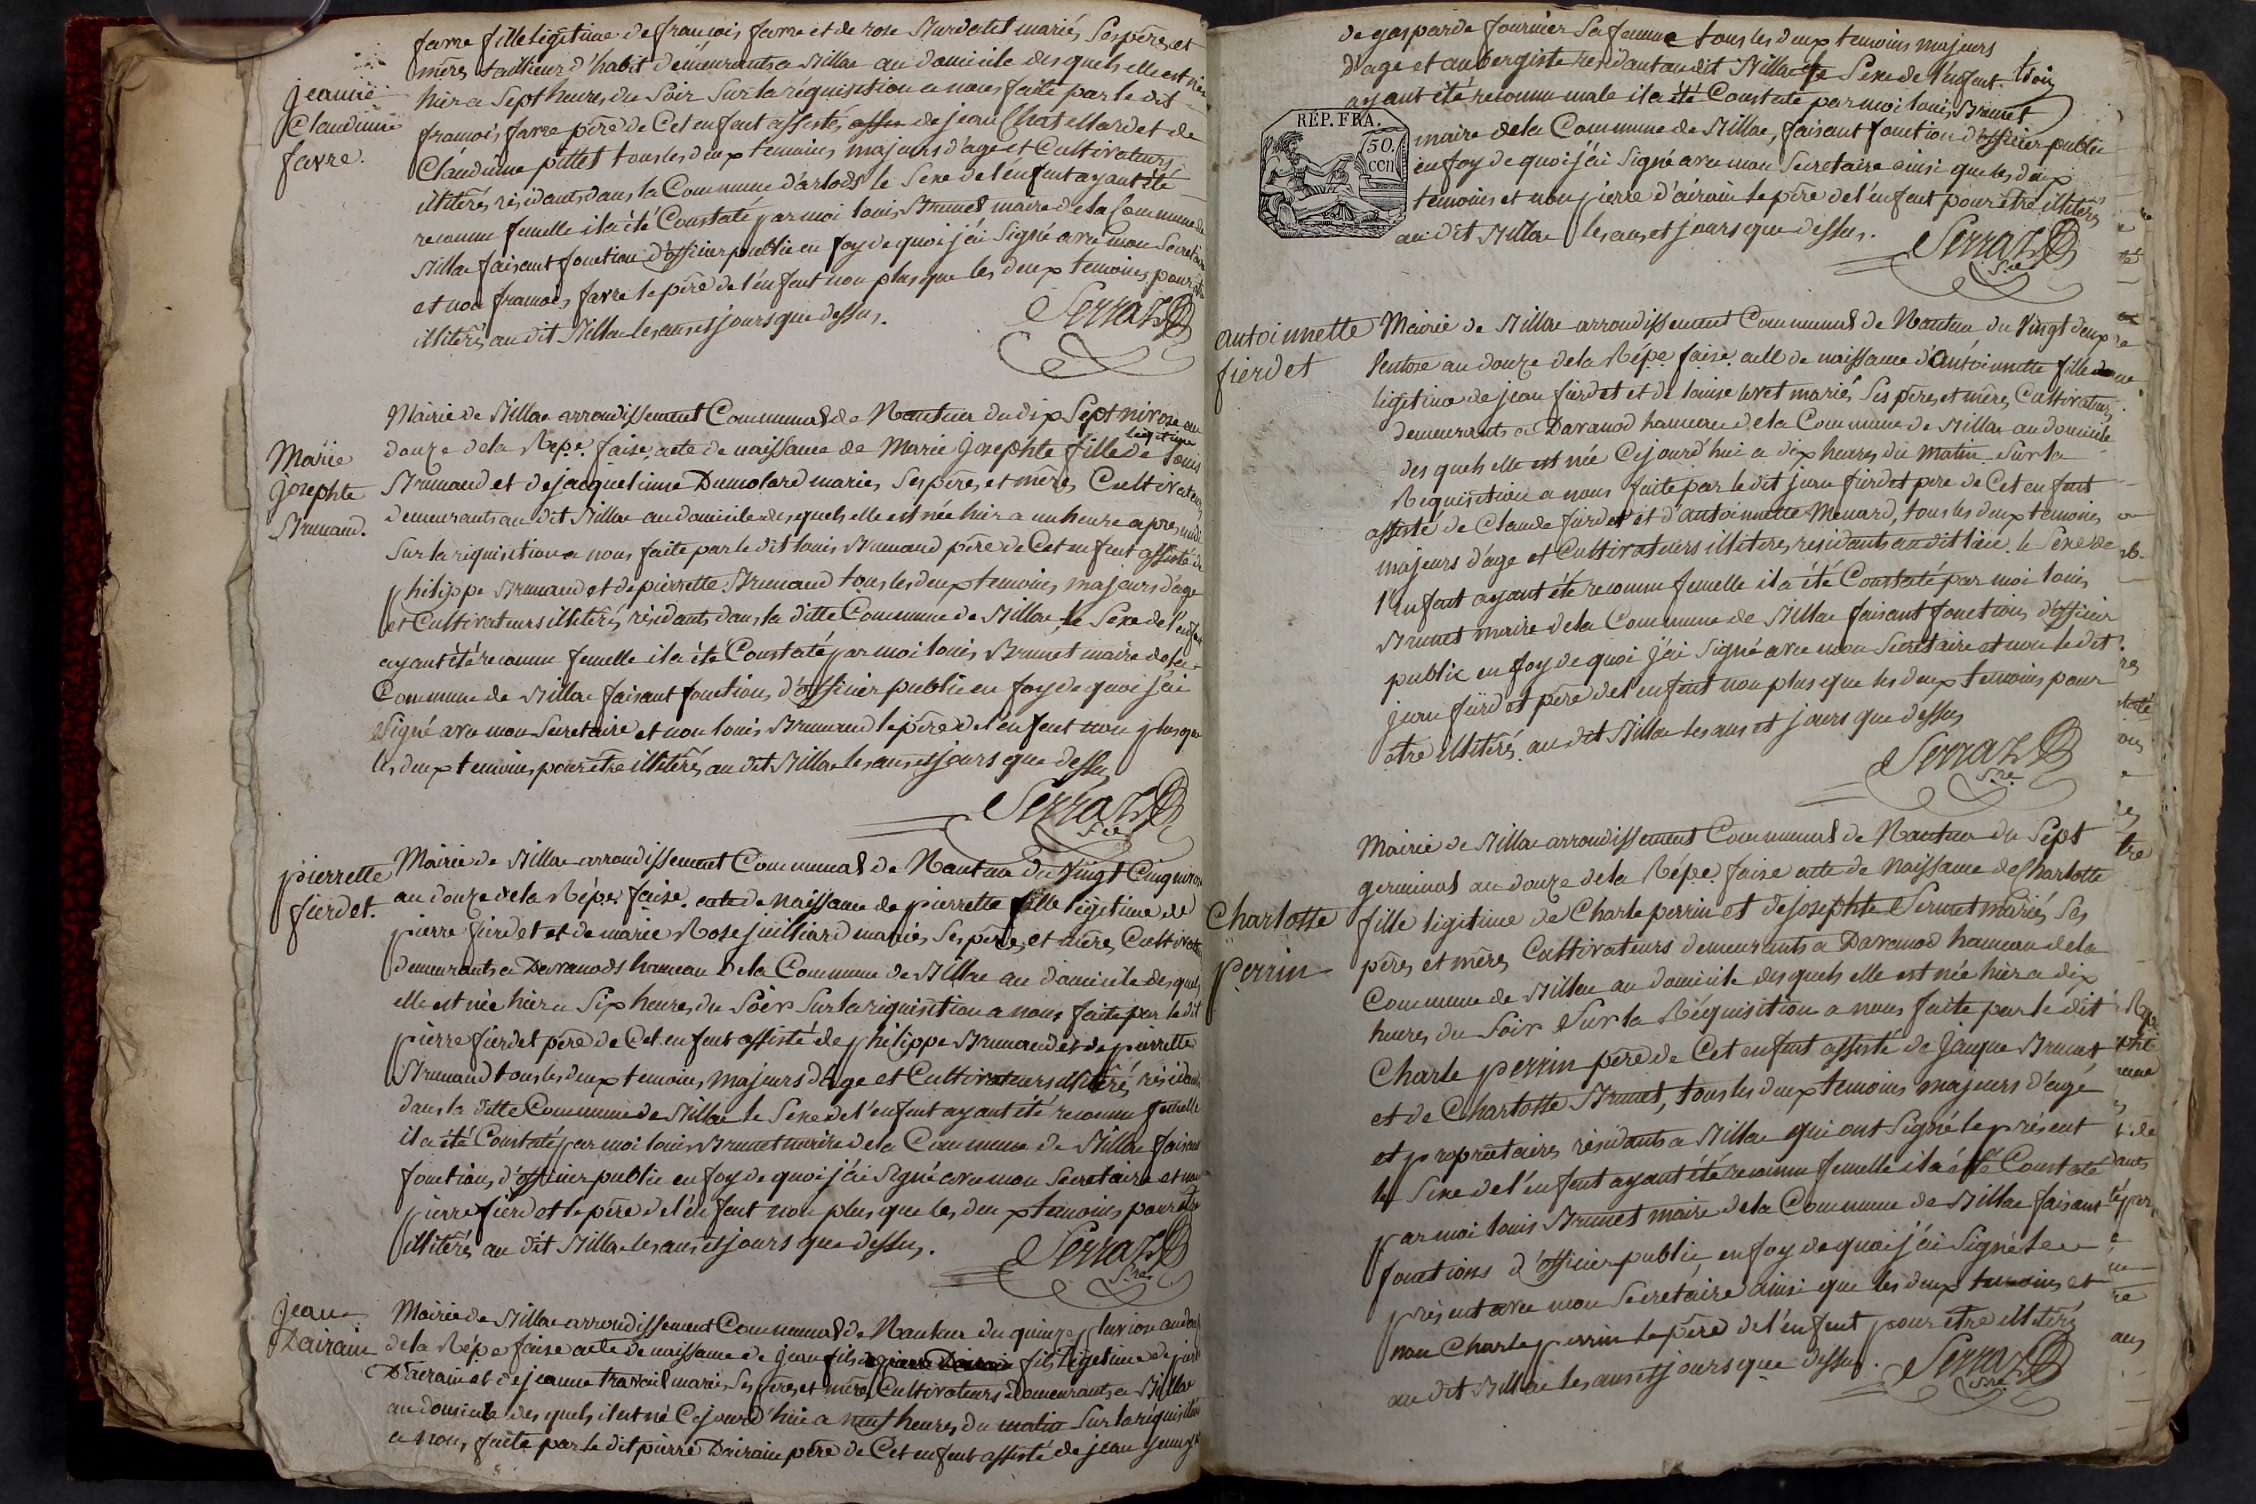 favre fille legitime de françois favre et de rose Burdalet mariés Ses pères et
mères tailleur d'habit demeurants a Billia au domicile des quels elle est née
hier a Sept heures du Soir Sur la réquisition a nous faite par le dit
françois favre père de Cet enfant assistés de jean Chatellard et de
Claudinne pittet tous les deux temoins majeurs d'age et Cultivateurs
illitérés résidants dans la Commune d'arlods le Sexe de l'enfant ayant été
reconnu femelle il a été Constaté par moi louis Brunet maire de la Commune de
Billia faisant fonction d'officier public en foy de quoi j'ai Signé avec mon Secretaire
et non françois favre le père de l'enfant non plus que les deux temoins pour être
illitérés au dit Billia les ans et jours que dessus.
Serraz
jeanne
Claudinne
favre.
Mairie de Billia arrondissement Communal de Nantua du dix Sept nivose an
douze de la Répe. faise. acte de naissance de Marie josephte fille legitime de louis
Brunaud et de jacquelinne Dumolard mariés Ses pères et mères Cultivateurs
demeurants au dit Billia au domicile des quels elle est née hier a un heure apres midi
Sur la riquisition a nous faite par le dit louis Brunaud père de Cet enfant assisté de
philippe Brunaud et de pierrette Brunaud tous les deux temoins majeurs d'age
et Cultivateurs illitérés résidants dans la ditte Commune de Billia le Sexe de l'enfant
ayant été reconnu femelle il a été Constaté par moi louis Brunet maire de la
Commune de Billia faisant fonctions d'officier public en foy de quoi j'ai
Signé avec mon Secretaire et non louis Brunaud le père de l'enfant non plus que
les deux temoins pour être illitérés au dit Billia les ans et jours que dessus
Serraz
Sre
Marie
josephte
Brunaud.
Mairie de Billia arrondissement Communal de Nantua du Vingt Cinq nivose
an douze de la Répe. faise. acte de naissance de pierrette fille legitime de
pierre fierdet et de marie Rose juilliard mariés Ses pères et mères Cultivateurs
demeurants a Davanods hameau de la Commune de Billia au domicile des quels
elle est née hier a Six heures du Soir Sur la riquisition a nous faite par le dit
pierre fierdet père de Cet enfant assisté de philippe Brunaud et de pierrette
Brunaud tous les deux temoins majeurs d'age et Cultivateurs illitérés résidants
dans la ditte Commune de Billia le Sexe de l'enfant ayant été reconnu femelle
il a été Constaté par moi louis Brunet maire de la Commune de Billia faisant
fonctions d'officier public en foy de quoi j'ai Signé avec mon Secretaire et non
pierre fierdet le père de l'enfant non plus que les deux temoins pour être
illitérés au dit Billia les ans et jours que dessus.
Serraz
Sre
pierrette
fierdet.
Mairie de Billia arrondissement Communal de Nantua du quinze pluviose an douze
de la Répe faise acte de naissance de jean fils de pierre Dairain fils legitime de pierre
Dairain et de jeanne travail mariés Ses pères et mères Cultivateurs demeurants a Billia
au domicile des quels il est né Cejourd'hui a neuf heures du matin Sur la réquisition
a nous faite par le dit pierre Dairain père de Cet enfant assisté de jean
jean
Dairain
de gasparde fournier Sa femme tous les deux temoins majeurs
d'age et aubergiste residant au dit Billia le Sexe de l'enfant
ayant été reconnu male il a été Constaté par moi louis Brunet
maire de la Commune de Billia, faisant fonction d'officier public
en foy de quoi j'ai Signé avec mon Secretaire ainsi que les deux
temoins et non pierre d'airain le père de l'enfant pour être illitérés
au dit Billia les ans et jours que dessus.
REP. FRA.
50.
CEN
Serraz
Sre
antoinnette
fierdet
Mairie de Billia arrondissement Communal de Nantua du Vingt deux
Ventose an douze de la Répe. faise. acte de naissance d'Antoinnette fille
legitime de jean fierdet et de louise levet mariés Ses pères et mères Cultivateurs
demeurants a Davanod hameau de la Commune de Billia au domicile
des quels elle est née Cejourd'hui a dix heures du matin Sur la
Requisition a nous faite par le dit jean fierdet pere de Cet enfant
assisté de Claude fierdet et d'antoinnette Menard, tous les deux temoins
majeurs d'age et Cultivateurs illiterés residants au dit lieu. le Sexe de
l'enfant ayant été reconnu femelle il a été Constaté par moi louis
Brunet maire de la Commune de Billia faisant fonctions d'officier
public en foy de quoi j'ai Signé avec mon Secretaire et non le dit
jean fierdet père de l'enfant non plus que les deux temoins pour
être illitérés au dit Billia les ans et jours que dessus
Serraz
Sre
Charlotte
perrin
Mairie de Billia arrondissement Communal de Nantua du Sept
germinal an douze de la Répe. faise acte de Naissance de Charlotte
fille legitime de Charle perrin et de josephte Sernet mariés Ses
pères et mères Cultivateurs demeurants a Davanod hameau de la
Commune de Billia au domicile des quels elle est née hier a dix
heures du Soir Sur la Réquisition a nous faite par le dit
Charle perrin père de Cet enfant assisté de Jaque Brunet
et de Charlotte Brunet, tous les deux temoins majeurs d'age
et propriétaires résidants a Billia qui ont Signé le présent
le Sexe de l'enfant ayant été reconnu femelle il a été Constaté
par moi louis Brunet maire de la Commune de Billia faisant
fonctions d'officier public, en foy de quoi j'ai Signé le
présent avec mon Secretaire ainsi que les deux temoins et
non Charle perrin le père de l'enfent pour être illitéré
au dit Billia les ans et jours que dessus.
Serraz
Sre